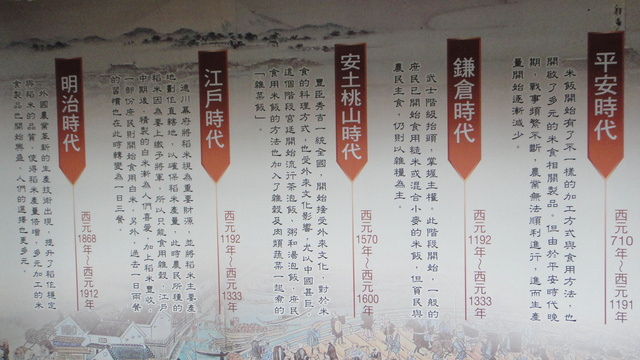 平安時代
西元710年～西元1191年
米飯開始有了不一樣的加工方式與食用方法，也
開啟了多元的米食相關製品。但由於平安時代晚
期，戰事頻繁不斷，農業無法順利進行，進而生產
量開始逐漸減少。
鎌倉時代
西元1192年～西元1333年
武士階級抬頭，掌握主權。此階段開始，一般的
庶民已開始食用糙米或混合小麥的米飯，但貧民與
農民主食，仍則以雜糧為主。
安土桃山時代
西元1570年～西元1600年
豐臣秀吉一統全國，開始接受外來文化，對於米
食的料理方式，也受外來文化影響，尤以中國甚巨。
這個階段宮廷開始流行茶泡飯、粥和湯泡飯，庶民
食用米飯的方法也加入了雜穀及肉類蔬菜一起煮的
「雜菜飯」。
江戶時代
西元1192年～西元1333年
德川幕府將稻米視為重要財源，並將稻米主要產
地劃作直轄地，以確保稻米產量。此時農民所種的
稻米因為要上繳予將軍，所以只能食用雜穀。江戶
中期後，精製的白米漸為人們喜愛，加上稻米豐收，
一部份庶民則開始食用白米。另外，過去一日兩餐
的習慣也在此時轉變為一日三餐。
明治時代
西元1868年～西元1912年
外國農業革新的生產技術出現，提升了稻作穩定
與稻米的品質，使得稻米產量倍增，多元加工的米
食製品也開始興盛，人們的選擇也更多元。